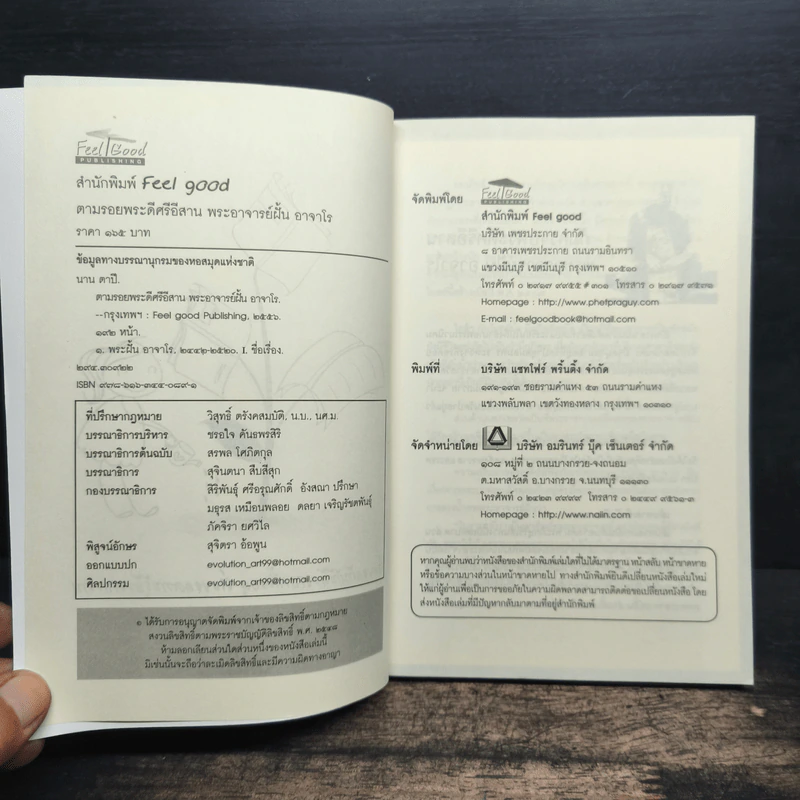 Feel Good
PUBLISHING
สำนักพิมพ์ Feel good
ตามรอยพระดีศรีอีสาน พระอาจารย์ฝั้น อาจาโร
ราคา ๑๖๕ บาท
ข้อมูลทางบรรณานุกรมของหอสมุดแห่งชาติ
นาน ตาปี.
ตามรอยพระดีศรีอีสาน พระอาจารย์ฝั้น อาจาโร.
--กรุงเทพฯ : Feel good Publishing, ๒๕๕๖.
๑๙๒ หน้า.
๑. พระฝั้น อาจาโร, ๒๔๔๒-๒๕๒๐. I. ชื่อเรื่อง.
๒๙๔.๓๐๙๒๒
ISBN ๙๗๘-๖๑๖-๓๔๔-๐๘๙-๑
ที่ปรึกษากฎหมาย วิสุทธิ์ ตรังคสมบัติ, น.บ., นศ.ม.
บรรณาธิการบริหาร ชรอใจ คันธพรสิริ
บรรณาธิการต้นฉบับ สรพล โศภิตกุล
บรรณาธิการ สุจินตนา สืบสีสุก
กองบรรณาธิการ สิริพันธุ์ ศรีอรุณศักดิ์ อังสณา ปรึกษา
มธุรส เหมือนพลอย ดลยา เจริญรัชตพันธุ์
ภัคจิรา ยศวิไล
พิสูจน์อักษร สุจิตรา อ้อพูน
ออกแบบปก evolution_art99@hotmail.com
ศิลปกรรม evolution_art99@hotmail.com
๏ ได้รับการอนุญาตจัดพิมพ์จากเจ้าของลิขสิทธิ์ตามกฎหมาย
สงวนลิขสิทธิ์ตามพระราชบัญญัติลิขสิทธิ์ พ.ศ. ๒๕๓๗
ห้ามลอกเลียนส่วนใดส่วนหนึ่งของหนังสือเล่มนี้
มิเช่นนั้นจะถือว่าละเมิดลิขสิทธิ์และมีความผิดทางอาญา
จัดพิมพ์โดย Feel Good
PUBLISHING
สำนักพิมพ์ Feel good
บริษัท เพชรประกาย จำกัด
๘ อาคารเพชรประกาย ถนนรามอินทรา
แขวงมีนบุรี เขตมีนบุรี กรุงเทพฯ ๑๐๕๑๐
โทรศัพท์ ๐ ๒๙๑๗ ๙๙๕๕ # ๓๐๑ โทรสาร ๐ ๒๙๑๗ ๙๕๗๑
Homepage : http://www.phetpraguy.com
E-mail : feelgoodbook@hotmail.com
พิมพ์ที่ บริษัท แซทโฟร์ พริ้นติ้ง จำกัด
๑๙๑-๑๙๓ ซอยรามคำแหง ๕๓ ถนนรามคำแหง
แขวงพลับพลา เขตวังทองหลาง กรุงเทพฯ ๑๐๓๑๐
จัดจำหน่ายโดย บริษัท อมรินทร์ บุ๊ค เซ็นเตอร์ จำกัด
๑๐๘ หมู่ที่ ๒ ถนนบางกรวย-จงถนอม
ต.มหาสวัสดิ์ อ.บางกรวย จ.นนทบุรี ๑๑๑๓๐
โทรศัพท์ ๐ ๒๔๒๓ ๙๙๙๙ โทรสาร ๐ ๒๔๔๙ ๙๕๖๑-๓
Homepage : http://www.naiin.com
หากคุณผู้อ่านพบว่าหนังสือของสำนักพิมพ์เล่มใดที่ไม่ได้มาตรฐาน หน้าสลับ หน้าขาดหาย
หรือข้อความบางส่วนในหน้าขาดหายไป ทางสำนักพิมพ์ยินดีเปลี่ยนหนังสือเล่มใหม่
ให้แก่ผู้อ่านเพื่อเป็นการขออภัยในความผิดพลาดสามารถติดต่อขอเปลี่ยนหนังสือ โดย
ส่งหนังสือเล่มที่มีปัญหากลับมาตามที่อยู่สำนักพิมพ์